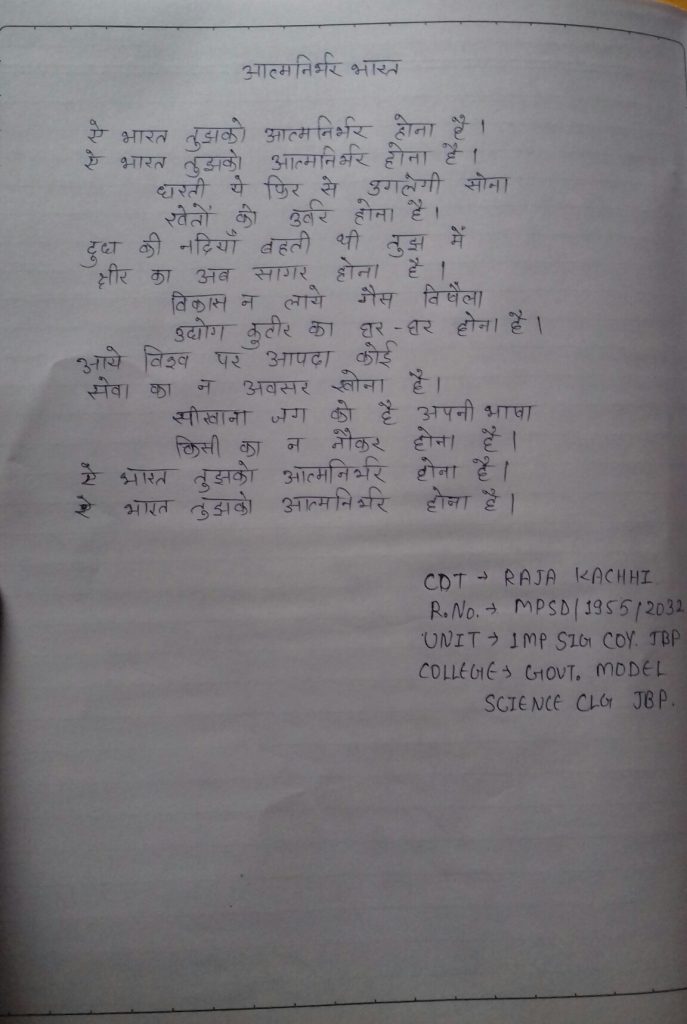 आत्मनिर्भर भारत
ऐ भारत तुझको आत्मनिर्भर होना है।
ऐ भारत तुझको आत्मनिर्भर होना है।
धरती ये फिर से उगलेगी सोना
खेतों को उर्वर होना है।
दुध की नदियाँ बहती थी तुझ में
क्षीर का अब सागर होना है।
विकास न लाये गैस विषैला
उद्योग कुटीर का घर-घर होना है।
आये विश्व पर आपदा कोई
सेवा का न अवसर खोना है।
सीखाना जग को है अपनी भाषा
किसी का न नौकर होना है।
ऐ भारत तुझको आत्मनिर्भर होना है।
ऐ भारत तुझको आत्मनिर्भर होना है।
CDT → RAJA KACHHI
R.No. → MPSD/1955/2032
UNIT → 1MP SIG COY. JBP
COLLEGE → GOVT. MODEL
SCIENCE CLG JBP.